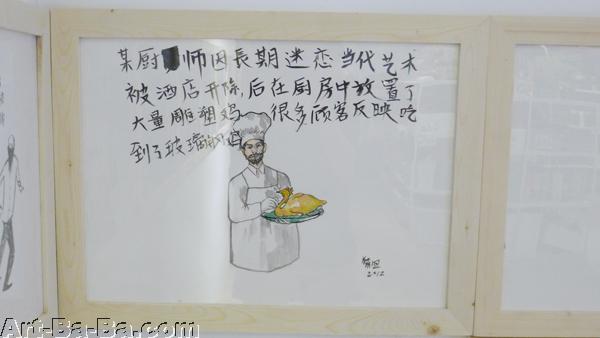 某厨师因長期迷恋当代艺术
被酒店开除,后在厨房中放置了
大量雕塑鸡 很多顾客反映吃
到了玻璃钢鸡
2012
Art-Ba-Ba.com